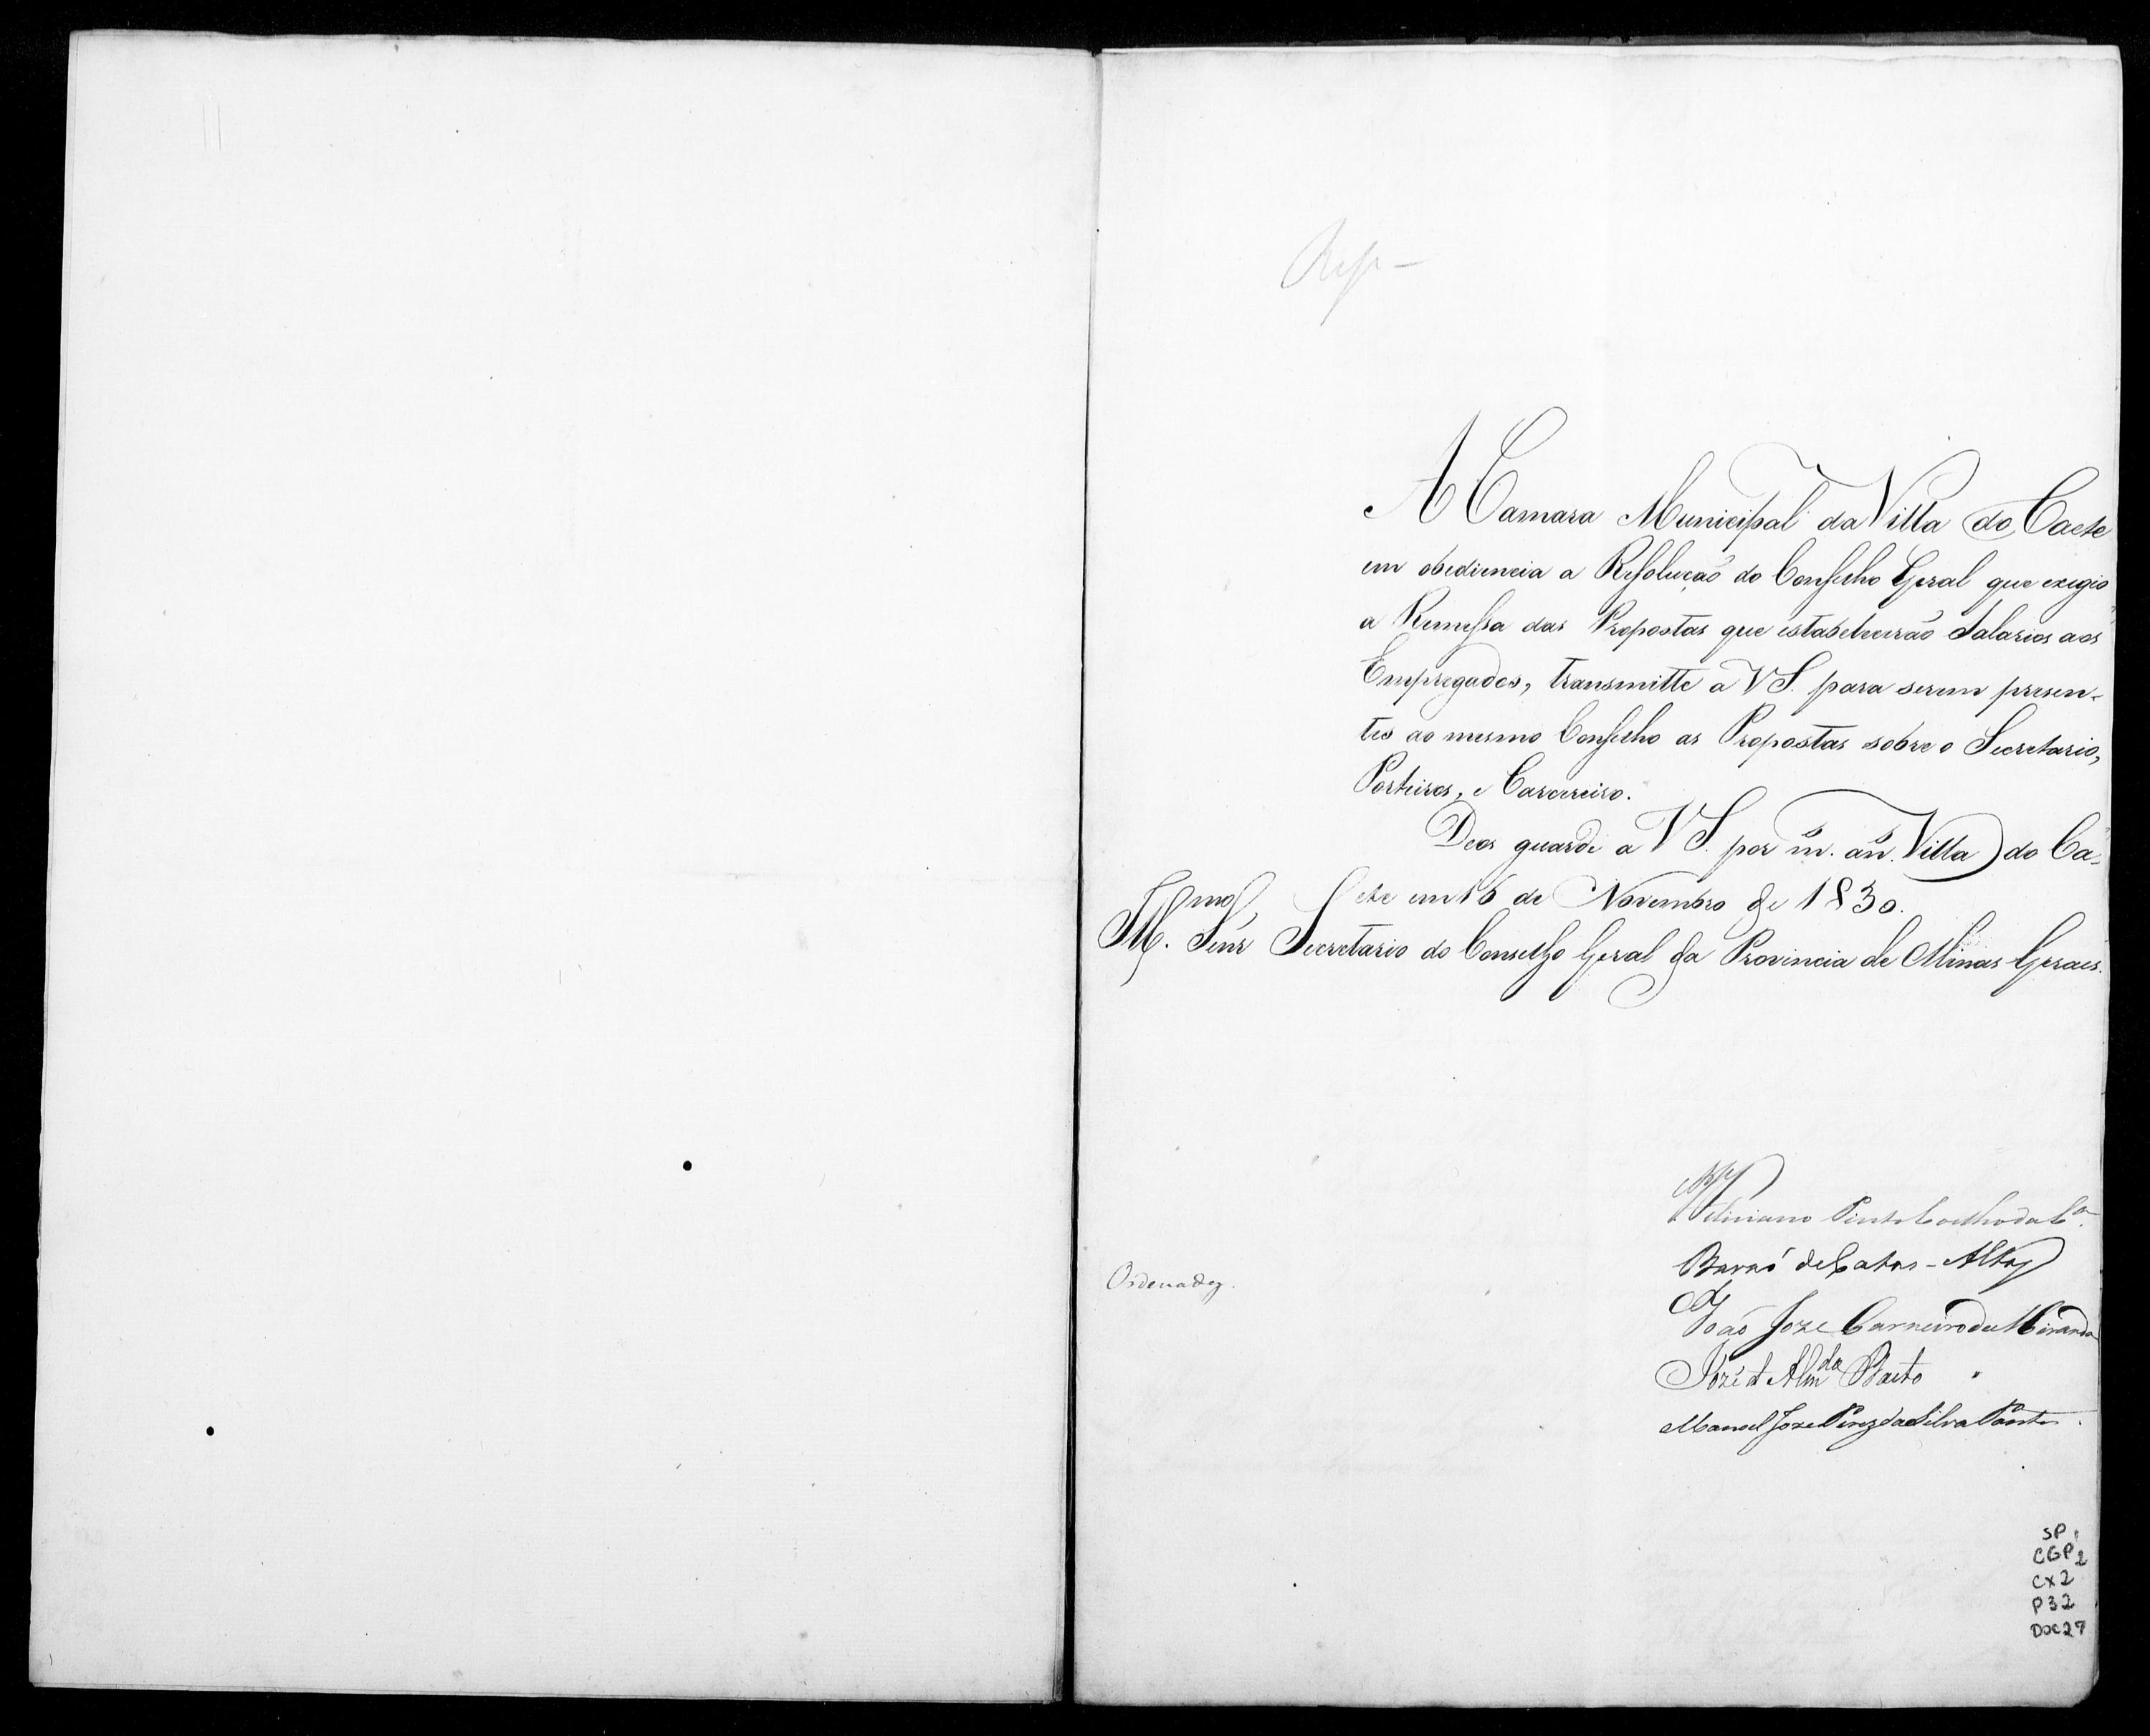 Resp -
A Camara Municipal da Villa do Caete
em obediencia a Resolução do Conselho Geral que exegio
a Remessa das Propostas que estabelecerão Salarios aos
Empregados, transmitte a V S. para serem presen-
tes ao mesmo Conselho as Propostas sobre o Secretario,
Porteiros, e Carcereiro.
Deos guarde a V S. por m.s an.s Villa do Ca-
ete em 16 de Novembro de 1830.
Ill.mo Senr Secretario do Conselho Geral da Provincia de Minas Geraes.
Feliciano Pinto Coelho da C.a
Barão de Catas-Altas
João Joze Carneiro de Miranda
Ordenados.
Jozé d'Alm.da Baeto
Manoel Joze Pires da Silva Pontes.
SP 1
CGP 2
CX 2
P 32
DOC 27